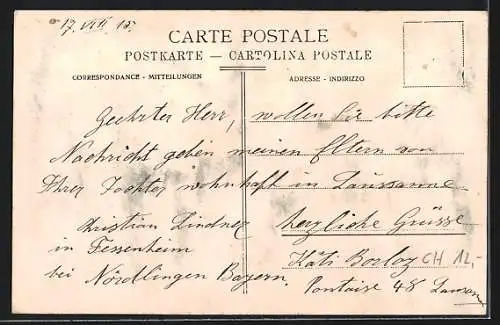 17. VIII 15.
CARTE POSTALE
POSTKARTE — CARTOLINA POSTALE
CORRESPONDANCE - MITTEILUNGEN
ADRESSE - INDIRIZZO
Geehrter Herr, wollen Sie bitte
Nachricht geben meinen Eltern von
Ihrer Tochter wohnhaft in Laussanne
Christian Lindner
in Fessenheim
bei Nördlingen Bayern.
herzliche Grüsse
Käti Borloz
CH 12,-
Pontaise 48 Lausan